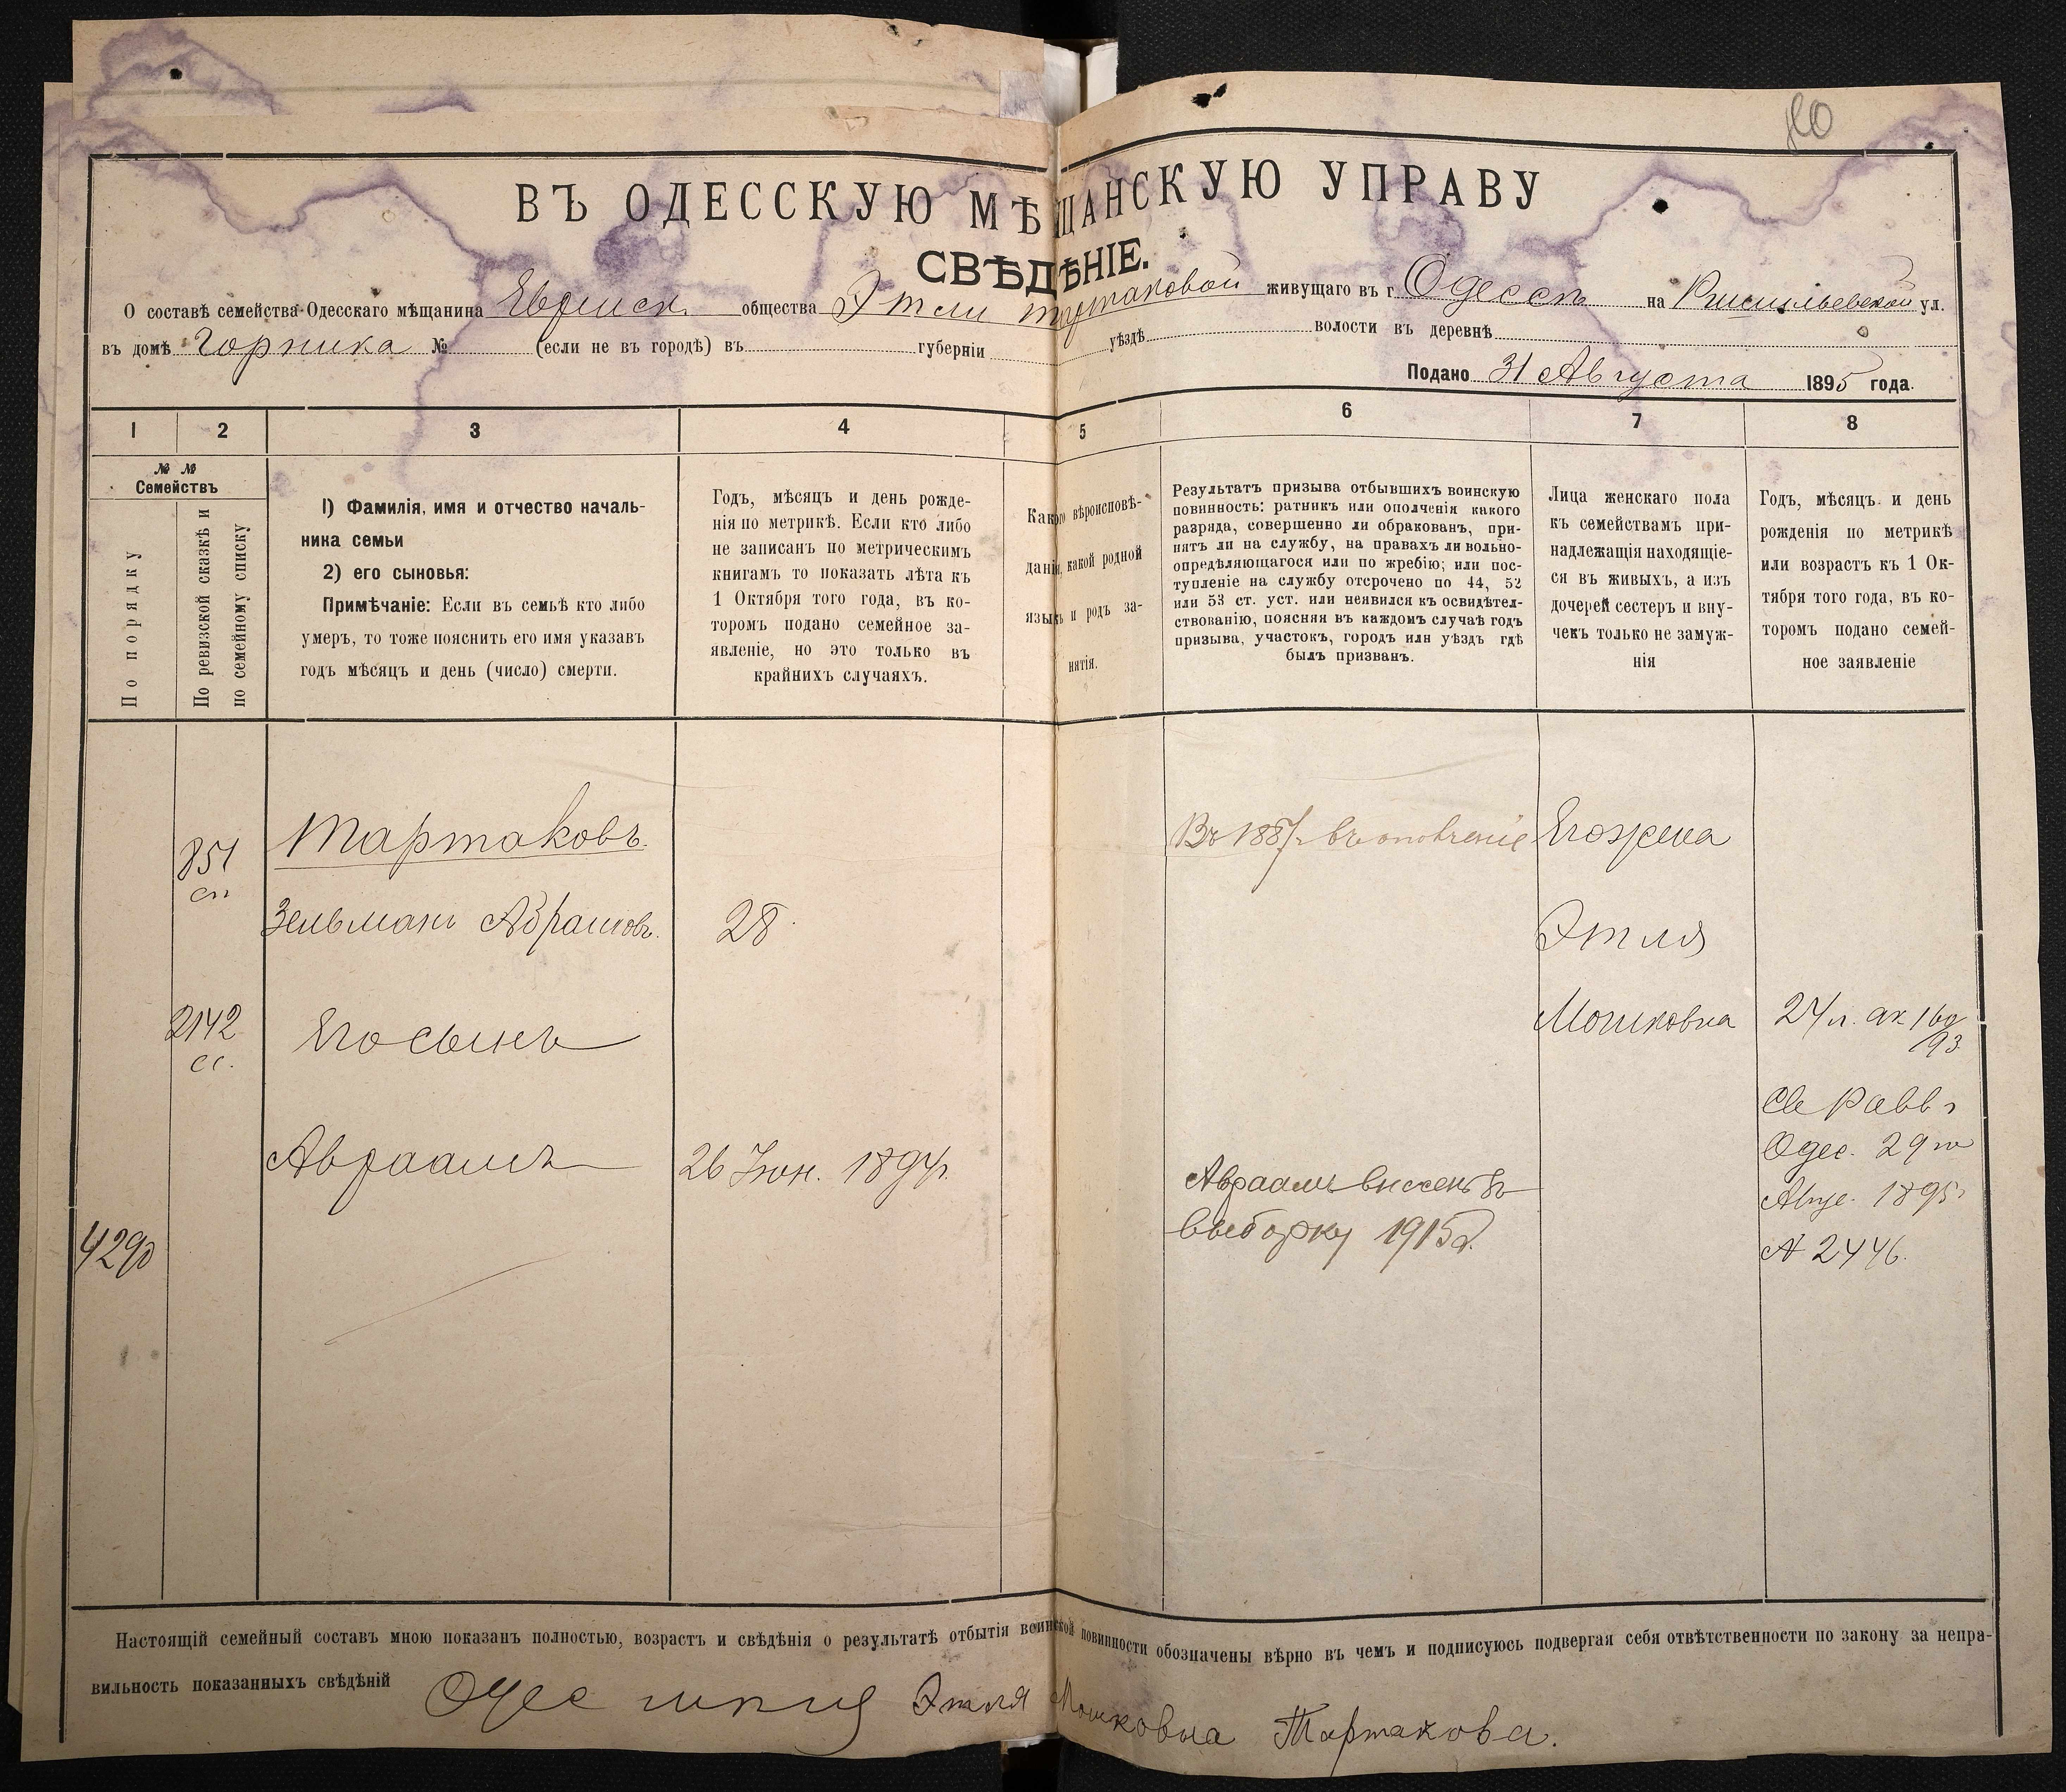 ВЪ ОДЕССКУЮ МѢЩАНСКУЮ УПРАВУ
СВѢДѢНІЕ.
О составѣ семейства Одесскаго мѣщанина Еврейск. общества Этли Тартаковой живущаго въ г Одессѣ на Ришельевской ул.
въ домѣ Горника № (если не въ городѣ) въ губерніи уѣздѣ волости въ деревнѣ
Подано 31 Августа 1895 года.
1 2 3 4 5 6 7 8
№ №
Семействъ
По порядку
По ревизской сказкѣ и
по семейному списку
1) Фамилія, имя и отчество началь-
ника семьи
2) его сыновья:
Примѣчаніе: Если въ семьѣ кто либо
умеръ, то тоже пояснить его имя указавъ
годъ мѣсяцъ и день (число) смерти.
Годъ, мѣсяцъ и день рожде-
нія по метрикѣ. Если кто либо
не записанъ по метрическимъ
книгамъ то показать лѣта къ
1 Октября того года, въ ко-
торомъ подано семейное за-
явленіе, но это только въ
крайнихъ случаяхъ.
Какого вѣроисповѣ-
данія, какой родной
языкъ и родъ за-
нятія.
Результатъ призыва отбывшихъ воинскую
повинность: ратникъ или ополченія какого
разряда, совершенно ли обракованъ, при-
нятъ ли на службу, на правахъ ли вольно-
опредѣляющагося или по жребію; или пос-
тупленіе на службу отсрочено по 44, 52
или 53 ст. уст. или неявился къ освидѣтел-
ствованію, поясняя въ каждомъ случаѣ годъ
призыва, участокъ, городъ или уѣздъ гдѣ
былъ призванъ.
Лица женскаго пола
къ семействамъ при-
надлежащія находящіе-
ся въ живыхъ, а изъ
дочерей сестеръ и вну-
чекъ только не замуж-
нія
Годъ, мѣсяцъ и день
рожденія по метрикѣ
или возрастъ къ 1 Ок-
тября того года, въ ко-
торомъ подано семей-
ное заявленіе
851
сп
Тартаковъ.
Въ 1887г въ ополченіе
Его жена
Зельманъ Абрамовъ.
28
Этля
2142
сс.
Его сынъ
Мошковна
27 л.
93
Авраамъ
26 Іюн. 1894г.
Авраамъ внесенъ въ
выборку 1915г.
Св Равв
Одес. 29го
Авгус. 1895г
№ 2446.
4290
Настоящій семейный составъ мною показанъ полностью, возрастъ и свѣдѣнія о результатѣ отбытія воинской повинности обозначены вѣрно въ чемъ и подписуюсь подвергая себя отвѣтственности по закону за непра-
вильность показанныхъ свѣдѣній Этля Мошковна Тартакова.